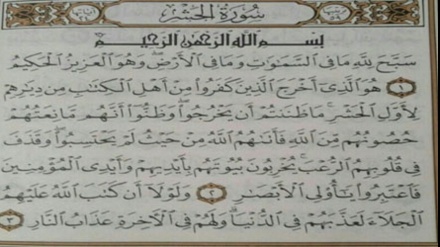 سُورَةُ الْحَشْرِ
بِسْمِ اللَّهِ الرَّحْمَٰنِ الرَّحِيمِ
سَبَّحَ لِلَّهِ مَا فِي السَّمَٰوَٰتِ وَمَا فِي الْأَرْضِ وَهُوَ الْعَزِيزُ الْحَكِيمُ
١ هُوَ الَّذِي أَخْرَجَ الَّذِينَ كَفَرُوا مِنْ أَهْلِ الْكِتَٰبِ مِن دِيَٰرِهِمْ
لِأَوَّلِ الْحَشْرِ مَا ظَنَنتُمْ أَن يَخْرُجُوا وَظَنُّوا أَنَّهُم مَّانِعَتُهُمْ
حُصُونُهُم مِّنَ اللَّهِ فَأَتَىٰهُمُ اللَّهُ مِنْ حَيْثُ لَمْ يَحْتَسِبُوا وَقَذَفَ
فِي قُلُوبِهِمُ الرُّعْبَ يُخْرِبُونَ بُيُوتَهُم بِأَيْدِيهِمْ وَأَيْدِي الْمُؤْمِنِينَ
فَاعْتَبِرُوا يَٰأُولِي الْأَبْصَٰرِ ٢ وَلَوْلَا أَن كَتَبَ اللَّهُ عَلَيْهِمُ
الْجَلَاءَ لَعَذَّبَهُمْ فِي الدُّنْيَا وَلَهُمْ فِي الْآخِرَةِ عَذَابُ النَّارِ ٣